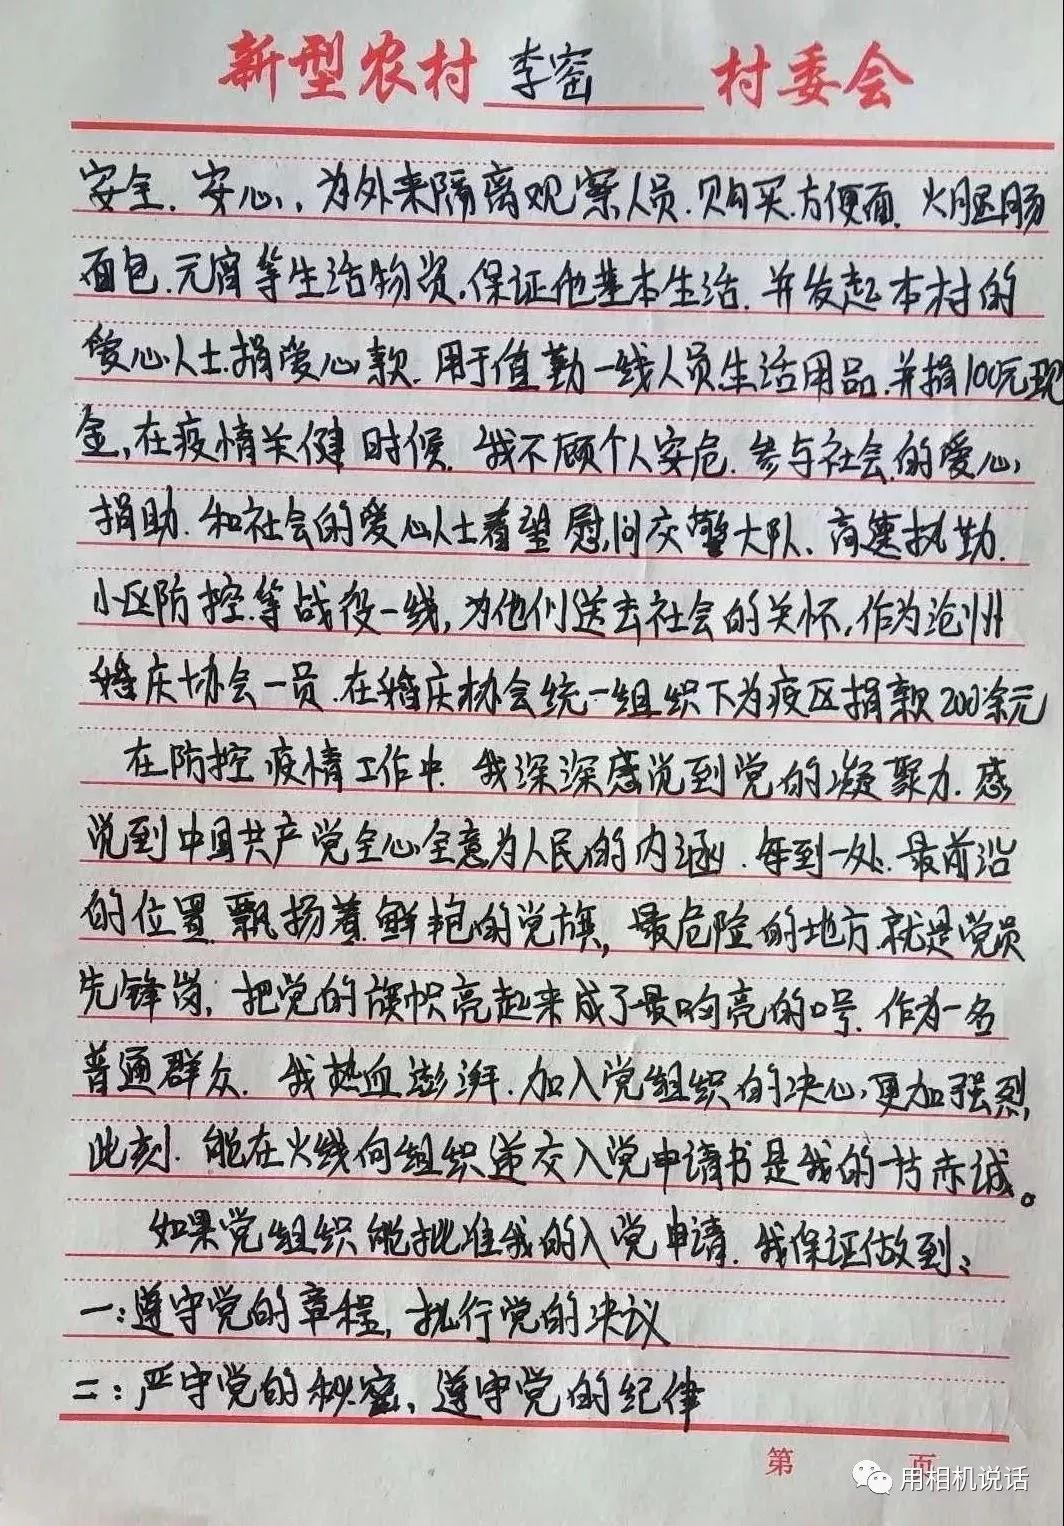 新型农村李窑村委会
安全、安心,为外来隔离观察人员.购买.方便面.火腿肠
面包.元宵等生活物资.保证他基本生活.并发起本村的
爱心人士.捐爱心款.用于值勤一线人员生活用品.并捐100元现
金,在疫情关健时候.我不顾个人安危.参与社会的爱心
捐助.和社会的爱心人士看望慰问交警大队、高速执勤.
小区防控.等战役一线,为他们送去社会的关怀,作为沧州
婚庆协会一员.在婚庆协会统一组织下为疫区捐款200余元
在防控疫情工作中.我深深感觉到党的凝聚力.感
觉到中国共产党全心全意为人民的内涵.每到一处.最前沿
的位置飘扬着鲜艳的党旗,最危险的地方就是党员
先锋岗,把党的旗帜亮起来成了最响亮的口号.作为一名
普通群众.我热血澎湃.加入党组织的决心,更加强烈,
此刻.能在火线向组织递交入党申请书是我的一片赤诚。
如果党组织能批准我的入党申请.我保证做到:
一:遵守党的章程,执行党的决议
二:严守党的秘密,遵守党的纪律
第 页
用相机说话